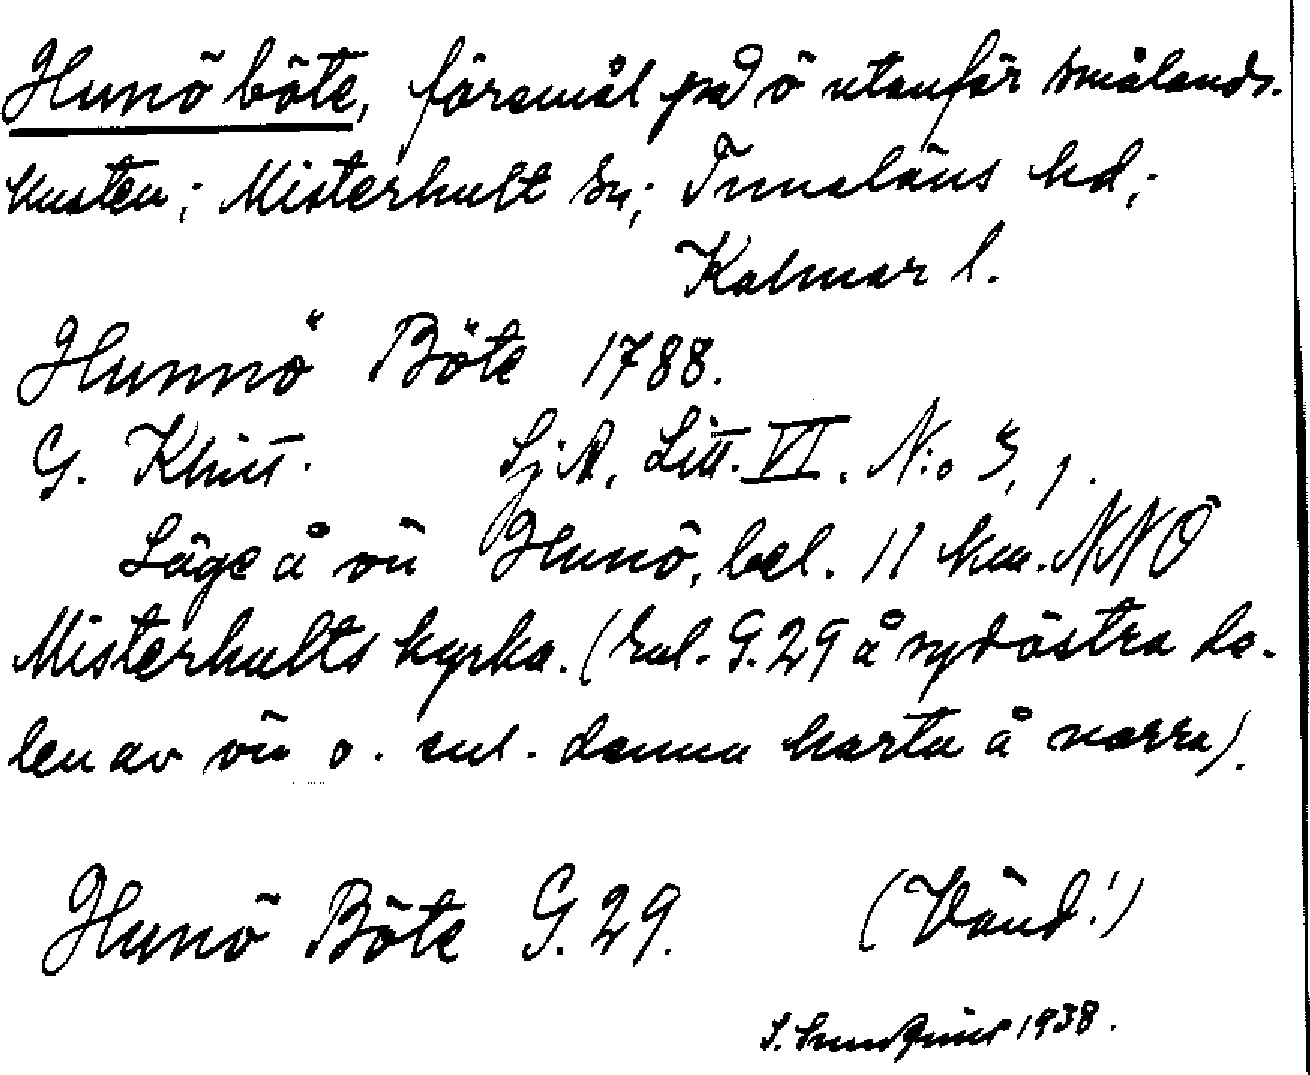 Hunö böte, föremål på ö utanför Smålands-
kusten; Misterhult sn; Tunaläns hd;
Kalmar l.
Hunnö Böte 1788.
G. Klint. SjA, Litt. VI. N:o 3, 1.
Läge å ön Hunö, bel. 11 km. NNÖ
Misterhults kyrka. (Enl. G. 29 å sydöstra de-
len av ön o. enl. denna karta å norra).
Hunö Böte G. 29. (Vänd!)
S. 1938.